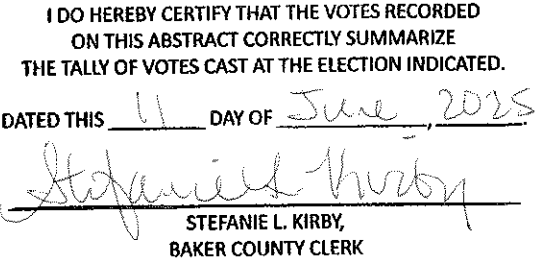 I DO HEREBY CERTIFY THAT THE VOTES RECORDED
ON THIS ABSTRACT CORRECTLY SUMMARIZE
THE TALLY OF VOTES CAST AT THE ELECTION INDICATED.
DATED THIS 11 DAY OF June, 2025.
Stefanie L Kirby
STEFANIE L. KIRBY,
BAKER COUNTY CLERK